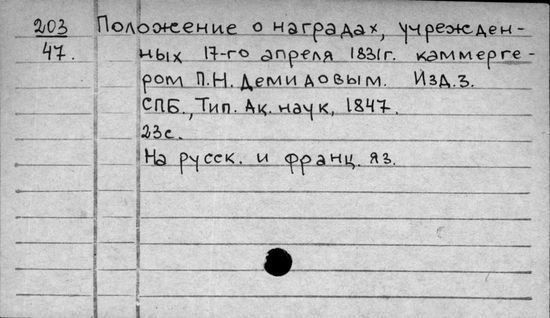 203 Положение о наградах, учрежден-
47. ных 17-го апреля 1831г. каммерге-
ром П.Н. Демидовым. Изд. 3.
СПБ., Тип. Ак. наук, 1847.
23с.
На русск. и франц. яз.